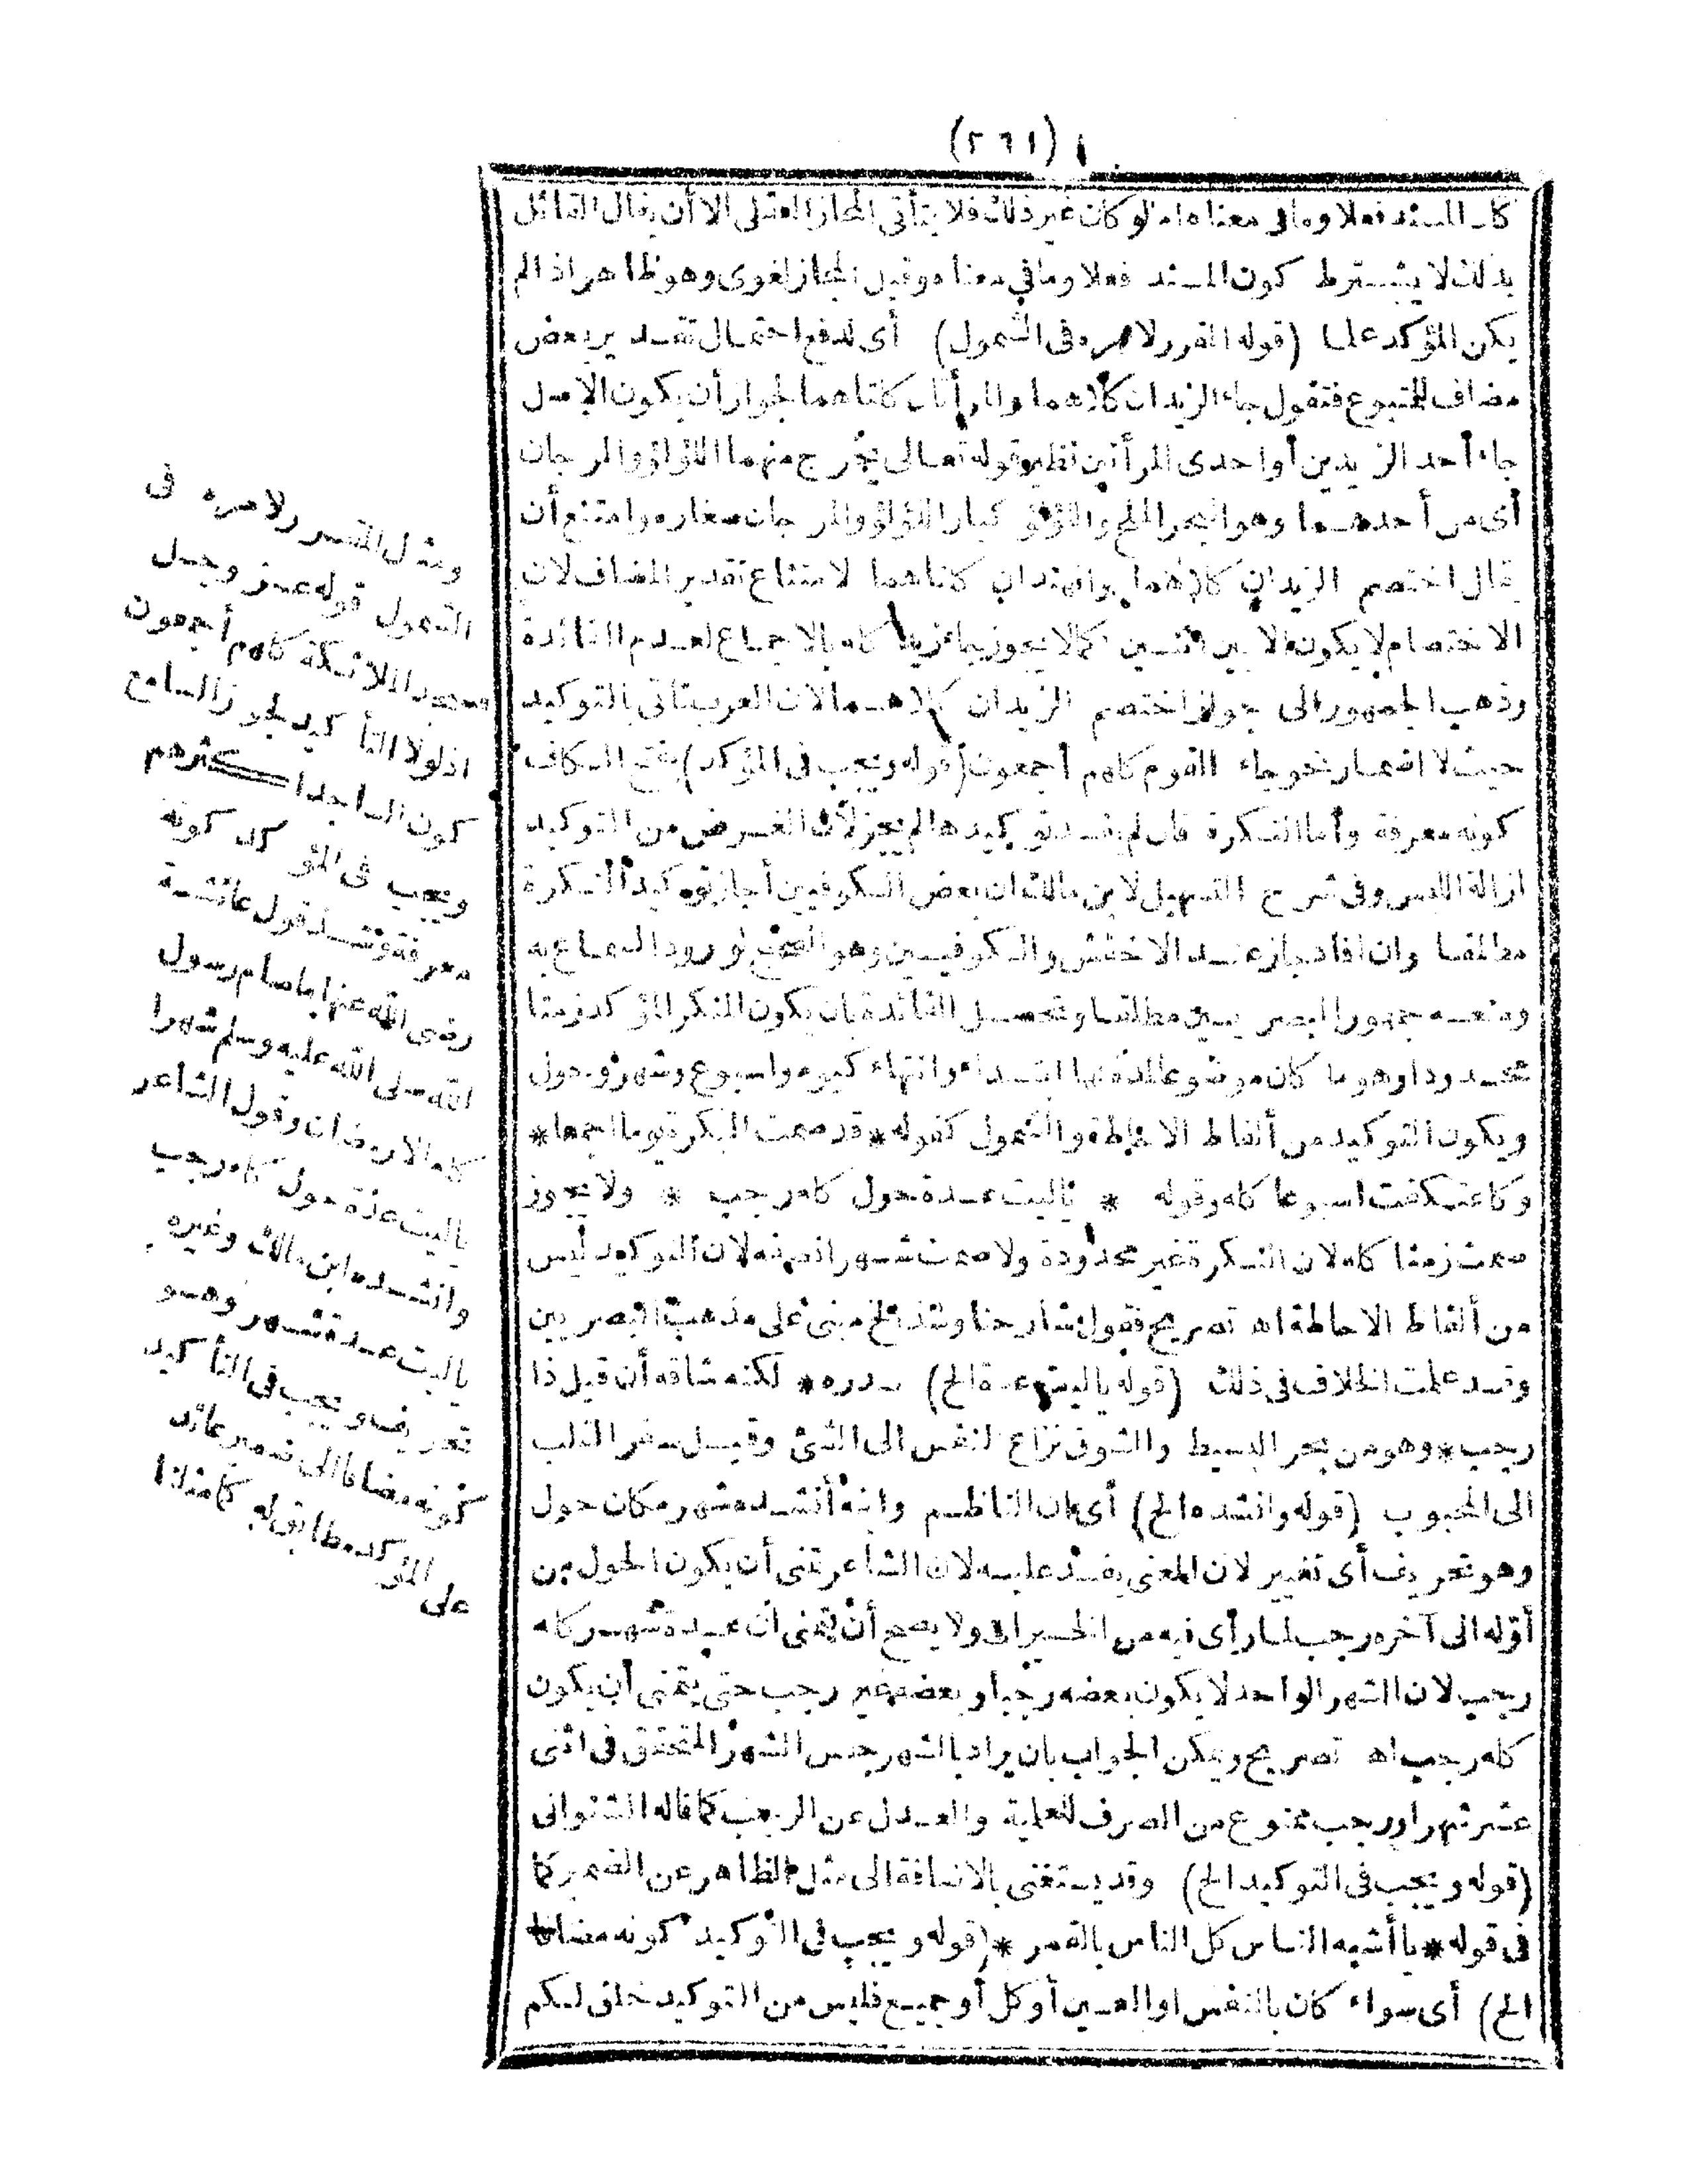 (٢٦١)
كان المسند فعلا وما فى معناه اما لو كان غير ذلك فلا يتأتى المجاز العقلى الا أن يقال القائل
بذلك لا يشترط كون المسند فعلا وما فى معناه وقيل المجاز لغوى وهو ظاهر اذا لم
يكن المؤكد علما (قوله المقرر لامره فى الشمول) أى لدفع احتمال تقدير بعض
مضاف للمتبوع فتقول جاء الزيدان كلاهما والمرأتان كلتاهما لجواز أن يكون الاصل
جاء أحد الزيدين أو احدى المرأتين نظير قوله تعالى يخرج منهما اللؤلؤ والمرجان
أى من أحدهما وهو البحر الملح واللؤلؤ كبار اللؤلؤ والمرجان صغاره وامتنع أن
يقال اختصم الزيدان كلاهما والهندان كلتاهما لامتناع تقدير المضاف لان
الاختصام لا يكون الا بين اثنين كما لا يجوز جاء زيد كله بالاجماع لعدم الفائدة
وذهب الجمهور الى جواز اختصم الزيدان كلاهما لان العرب تأتى بالتوكيد
حيث لا احتمال نحو جاء القوم كلهم أجمعون (قوله ويجب فى المؤكد) بفتح الكاف
كونه معرفة وأما النكرة فان لم يفد توكيدها لم يجز لان الغرض من التوكيد
ازالة اللبس وفى شرح التسهيل لابن مالك ان بعض الكوفيين أجاز توكيد النكرة
مطلقا وان افاد جاز عند الاخفش والكوفيين وهو الصحيح لورود السماع به
ومنعه جمهور البصريين مطلقا وتحصل الفائدة بان يكون المنكر المؤكد زمنا
محدودا وهو ما كان موضوعا لمدة لها ابتداء وانتهاء كيوم واسبوع وشهر وحول
ويكون التوكيد من ألفاظ الاحاطة والشمول كقوله * قد صرت البكرة يوما اجمعا *
وكاعتكفت اسبوعا كله وقوله * ياليت عدة حول كله رجب * ولا يجوز
صمت زمنا كله لان النكرة غير محدودة ولا صمت شهرا نصفه لان التوكيد ليس
من ألفاظ الاحاطة اهـ تصريح فقول شارحنا وشذ الخ مبنى على مذهب البصريين
وقد علمت الخلاف فى ذلك (قوله ياليت عدة الخ) صدره * لكنه شاقه أن قيل ذا
رجب * وهو من بحر البسيط والشوق نزاع النفس الى الشئ وقيل سفر القلب
الى المحبوب (قوله وانشده الخ) أى ان الناظم وابنه أنشده شهر مكان حول
وهو تحريف أى تغيير لان المعنى يفسد عليه لان الشاعر تمنى أن يكون الحول من
أوّله الى آخره رجب لما رأى فيه من الخيرات ولا يصح أن يتمنى ان عدة شهر كله
رجب لان الشهر الواحد لا يكون بعضه رجبا وبعضه غير رجب حتى يتمنى أن يكون
كله رجب اهـ تصريح ويمكن الجواب بان يراد بالشهر جنس الشهر المتحقق فى اثنى
عشر شهرا ورجب ممنوع من الصرف للعلمية والعدل عن الرجب كما قاله الشنوانى
(قوله ويجب فى التوكيد الخ) وقد يستغنى بالاضافة الى مثل الظاهر عن الضمير كما
فى قوله * يا أشبه الناس كل الناس بالقمر * (قوله ويجب فى التوكيد كونه مضافا
الخ) أى سواء كان بالنفس او العين أو كل أو جميع فليس من التوكيد خلق لكم
ومثال المقرر لامره فى
الشمول قوله عز وجل
فسجد الملائكة كلهم أجمعون
اذ لولا التأكيد لجوز السامع
كون الساجد اكثرهم
ويجب فى المؤكد كونه
معرفة وشذ قول عائشة
رضى الله عنها ما صام رسول
الله صلى الله عليه وسلم شهرا
كله الا رمضان وقول الشاعر
ياليت عدة حول كله رجب
وانشده ابن مالك وغيره
ياليت عدة شهر وهو
تحريف ويجب فى التأكيد
كونه مضافا الى ضمير عائد
على المؤكد مطابق له كما مثلنا